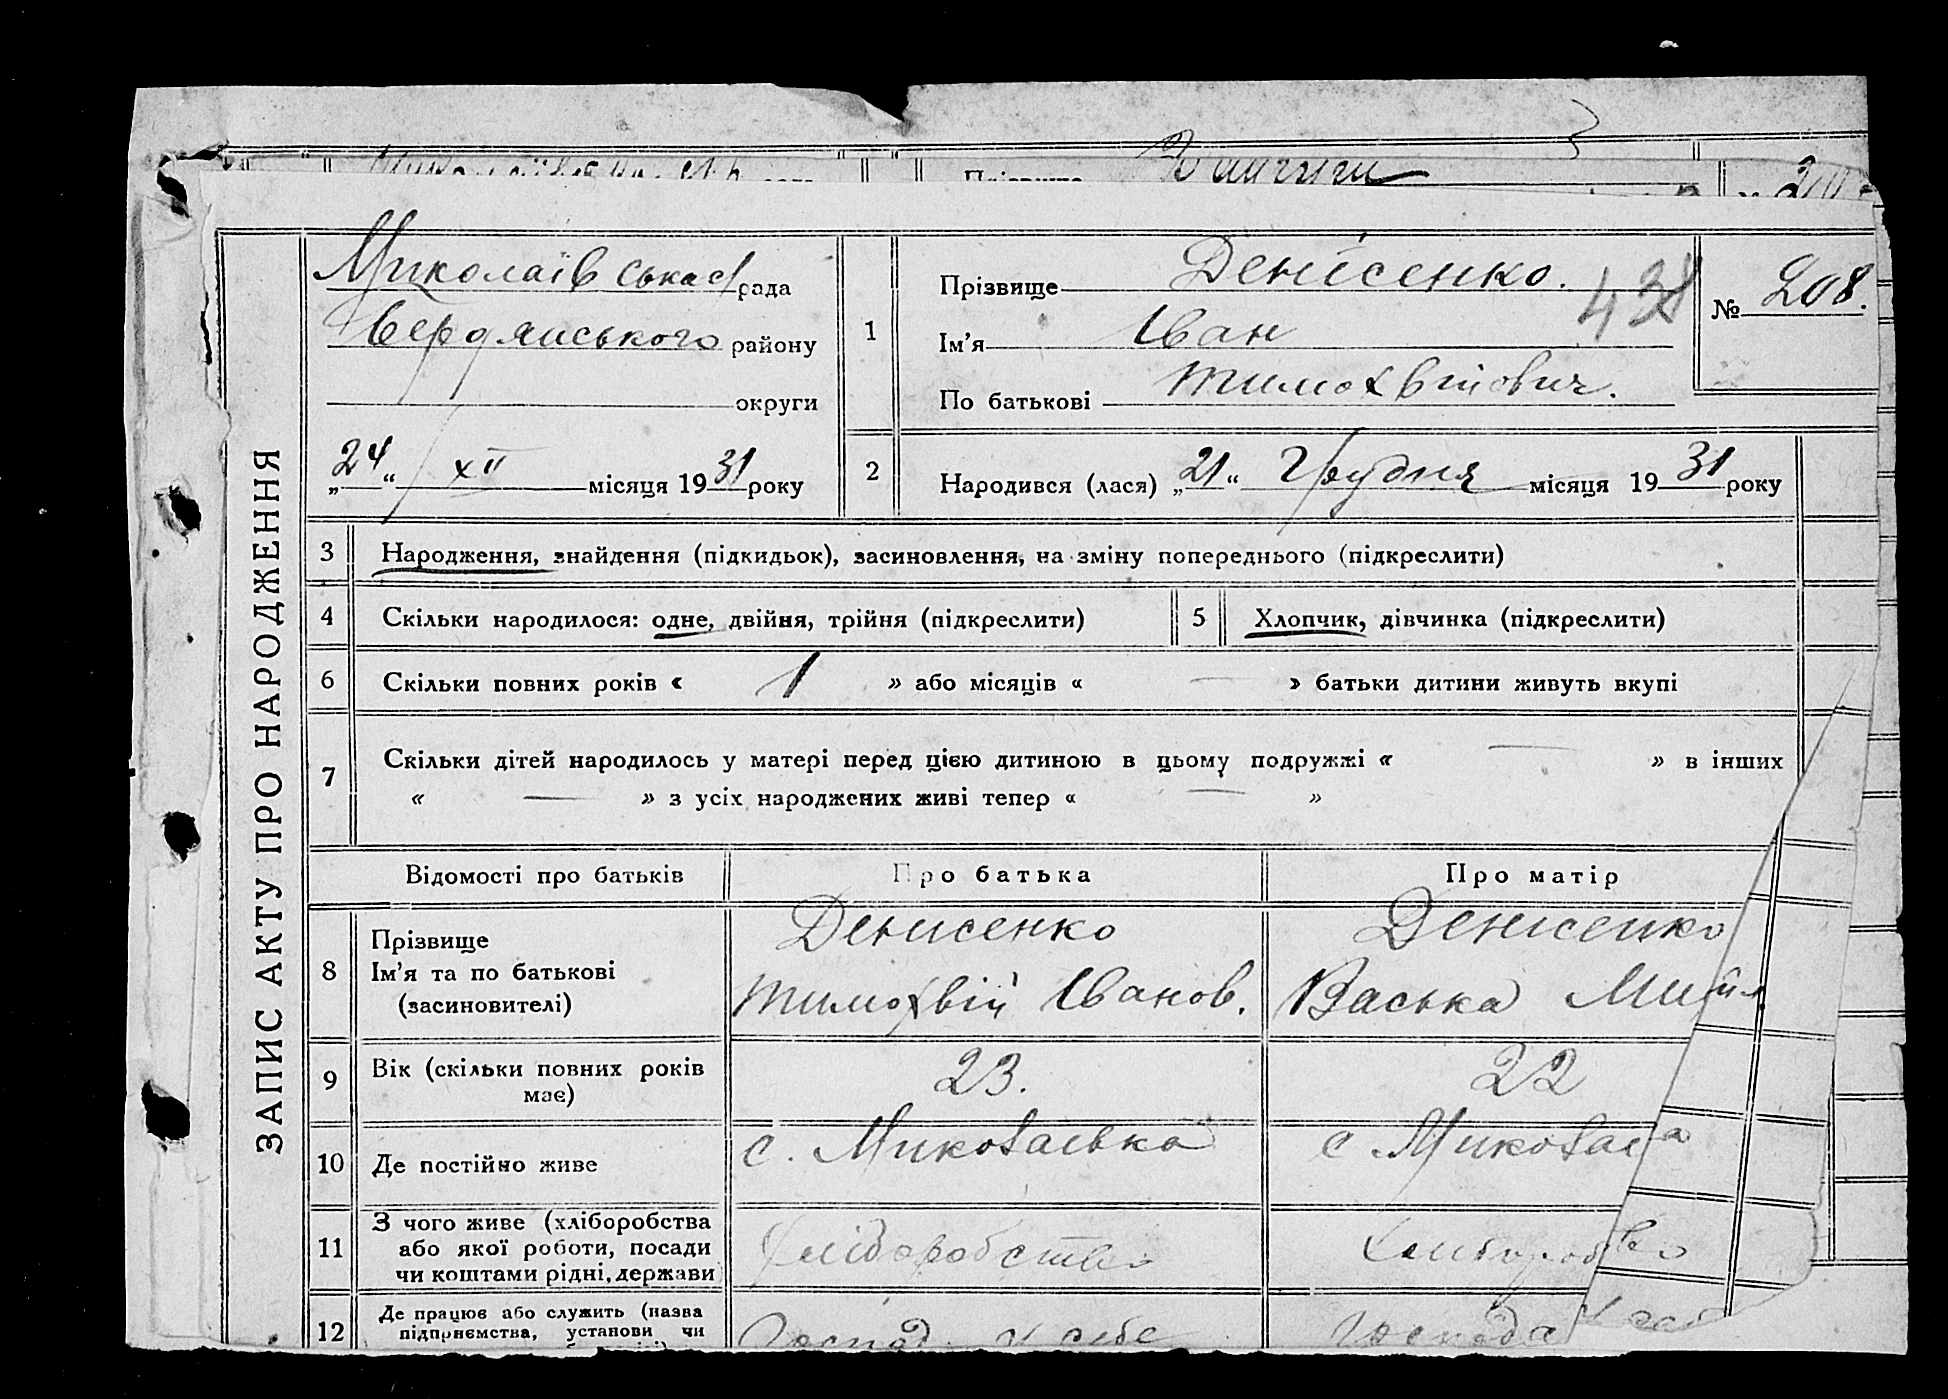 Прізвище
ЗАПИС АКТУ ПРО НАРОДЖЕННЯ
Миколаївська с/рада
Бердянського району
округи
„24“ XII місяця 1931 року
1
Прізвище Денісенко. 438
Ім’я Іван
По батькові Тимохвійович.
№ 208.
2 Народився (лася) „21“ Грудня місяця 1931 року
3 Народження, знайдення (підкидьок), засиновлення, на зміну попереднього (підкреслити)
4 Скільки народилося: одне, двійня, трійня (підкреслити) 5 Хлопчик, дівчинка (підкреслити)
6 Скільки повних років « 1 » або місяців « — » батьки дитини живуть вкупі
7 Скільки дітей народилось у матері перед цією дитиною в цьому подружжі « — » в інших
« — » з усіх народжених живі тепер « — »
Відомості про батьків Про батька Про матір
8 Прізвище Денисенко Денисенко
Ім’я та по батькові
(засиновителі) Тимохвій Іванов. Васька
9 Вік (скільки повних років
має) 23. 22
10 Де постійно живе с. Миколаєвка с.
11 З чого живе (хліборобства
або якої роботи, посади
чи коштами рідні, держави хліборобство
12 Де працює або служить (назва
підприємства, установи чи